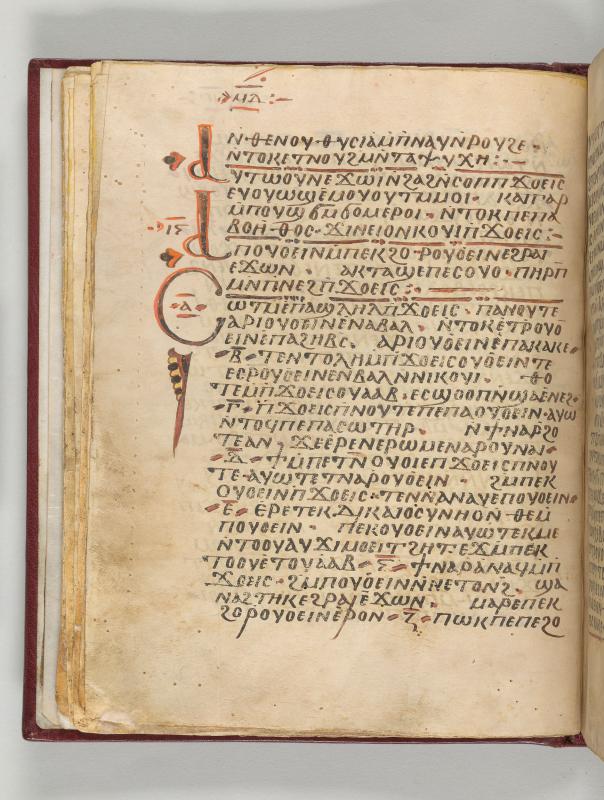 ⲙⲁ
ⲛ̄ⲑⲉⲛⲟⲩ ⲑⲩⲥⲓⲁ ⲙⲡⲛⲁⲩⲛⲣⲟⲩϩⲉ
ⲛⲧⲟⲕⲉⲧⲛⲟⲩϩⲙⲛⲧⲁⲯⲩⲭⲏ
ⲁⲩⲧⲱⲟⲩⲛⲉϫⲱⲓⲛϩⲁϩⲛⲥⲟⲡ ⲡϫⲟⲉⲓⲥ
ⲉⲩⲟⲩⲱϣⲉⲙⲟⲩⲟⲩⲧⲙⲙⲟⲓ ⲕⲁⲓⲅⲁⲣ
ⲙⲡⲟⲩϣϭⲙϭⲟⲙⲉⲣⲟⲓ ⲛⲧⲟⲕⲡⲉⲡⲁ
ⲃⲟⲏⲑⲟⲥ ϫⲓⲛⲉⲓⲟⲛⲕⲟⲩⲓ ⲡϫⲟⲉⲓⲥ
ⲓⲋ
ⲁⲡⲟⲩⲟⲉⲓⲛⲙⲡⲉⲕϩⲟ ⲣⲟⲩⲟⲉⲓⲛⲉϩⲣⲁⲓ
ⲉϫⲱⲛ ⲁⲕⲧⲁϣⲉⲡⲉⲥⲟⲩⲟ ⲡⲏⲣⲡ
ⲙⲛⲡⲛⲉϩ ⲡϫⲟⲉⲓⲥ
ⲁ
ⲥⲱⲧⲙⲉⲡⲁϣⲗⲏⲗ ⲡϫⲟⲉⲓⲥ ⲡⲁⲛⲟⲩⲧⲉ
ⲁⲣⲓⲟⲩⲟⲉⲓⲛⲉⲛⲁⲃⲁⲗ ⲛⲧⲟⲕⲉⲧⲣⲟⲩⲟ
ⲉⲓⲛⲉⲡⲁϩⲏⲃⲥ ⲁⲣⲓⲟⲩⲟⲉⲓⲛⲉⲡⲁⲕⲁⲕⲉ
ⲃ ⲧⲉⲛⲧⲟⲗⲏⲙⲡϫⲟⲉⲓⲥⲟⲩⲟⲉⲓⲛⲧⲉ
ⲉⲥⲣⲟⲩⲟⲉⲓⲛⲉⲛⲃⲁⲗⲛⲛⲓⲕⲟⲩⲓ ⲑⲟ
ⲧⲉⲙⲡϫⲟⲉⲓⲥⲟⲩⲁⲁⲃ ⲉⲥϣⲟⲟⲡⲛϣⲁⲉⲛⲉϩ
ⲅ ⲡϫⲟⲉⲓⲥⲡⲛⲟⲩⲧⲉⲡⲉⲡⲁⲟⲩⲟⲉⲓⲛ ⲁⲩⲱ
ⲛⲧⲟϥⲡⲉⲡⲁⲥⲱⲧⲏⲣ ⲛϯⲛⲁⲣϩⲟ
ⲧⲉⲁⲛ ϫⲉⲉⲣⲉⲛⲉⲣⲱⲙⲉⲛⲁⲣⲟⲩⲛⲁⲓ
ⲇ ϯⲙⲡⲉⲧⲛⲟⲩⲟⲓⲉⲡϫⲟⲉⲓⲥⲡⲛⲟⲩ
ⲧⲉ ⲁⲩⲱⲧⲉⲧⲛⲁⲣⲟⲩⲟⲉⲓⲛ ϩⲙⲡⲉⲕ
ⲟⲩⲟⲉⲓⲛⲡϫⲟⲉⲓⲥ ⲧⲉⲛⲛⲁⲛⲁⲩⲉⲡⲟⲩⲟⲉⲓⲛ
ⲉ ⲉⲣⲉⲧⲉⲕⲇⲓⲕⲁⲓⲟⲥⲩⲛⲏⲟⲛⲑⲉⲙ
ⲡⲟⲩⲟⲉⲓⲛ ⲡⲉⲕⲟⲩⲟⲉⲓⲛⲁⲩⲱⲧⲉⲕⲙⲉ
ⲛⲧⲟⲟⲩⲁⲩϫⲓⲙⲟⲉⲓⲧϩⲏⲧ ⲉϫⲙⲡⲉⲕ
ⲧⲟⲟⲩⲉⲧⲟⲩⲁⲁⲃ ⲋ ϯⲛⲁⲣⲁⲛⲁϥⲙⲡ
ϫⲟⲉⲓⲥ ϩⲙⲡⲟⲩⲟⲉⲓⲛⲛⲛⲉⲧⲟⲛϩ ϣⲁ
ⲛⲁϩⲧⲏⲕⲉϩⲣⲁⲓⲉϫⲱⲛ ⲙⲁⲣⲉⲡⲉⲕ
ϩⲟⲣⲟⲩⲟⲉⲓⲛⲉⲣⲟⲛ ⲍ ⲡⲱⲕⲡⲉⲡⲉϩⲟ